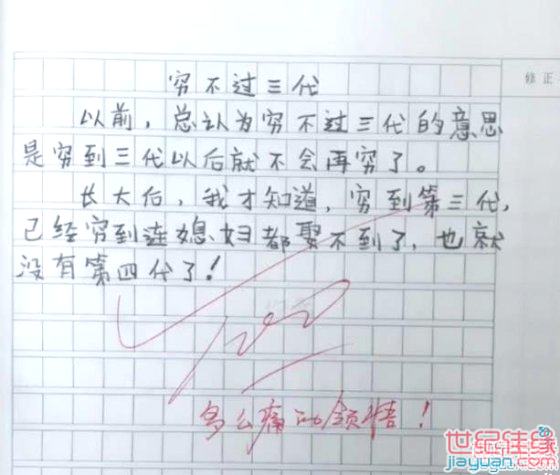 修正
穷不过三代
以前，总认为穷不过三代的意思
是穷到三代以后就不会再穷了。
长大后，我才知道，穷到第三代，
已经穷到连媳妇都娶不到了，也就
没有第四代了！
100
多么痛的领悟！
世纪佳缘
jiayuan.com